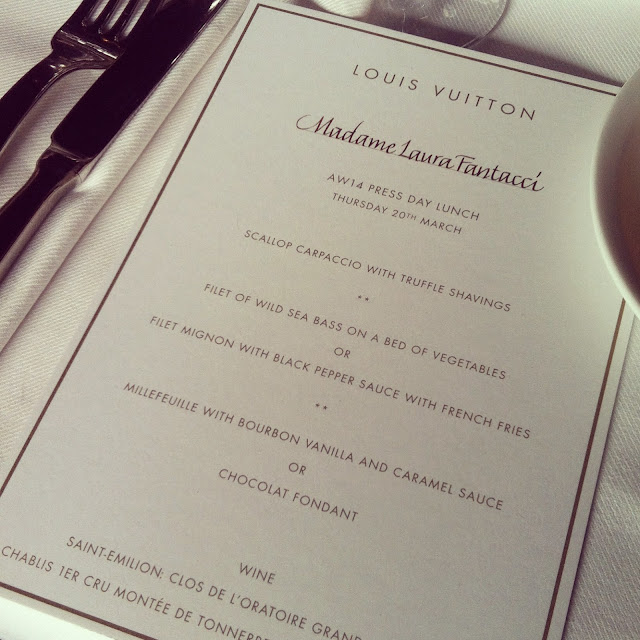 LOUIS VUITTON
Madame Laura Fantacci
AW14 PRESS DAY LUNCH
THURSDAY 20TH MARCH
SCALLOP CARPACCIO WITH TRUFFLE SHAVINGS
**
FILET OF WILD SEA BASS ON A BED OF VEGETABLES
OR
FILET MIGNON WITH BLACK PEPPER SAUCE WITH FRENCH FRIES
**
MILLEFEUILLE WITH BOURBON VANILLA AND CARAMEL SAUCE
OR
CHOCOLAT FONDANT
WINE
SAINT-EMILION: CLOS DE L'ORATOIRE GRAND
CHABLIS 1ER CRU MONTÉE DE TONNERRE